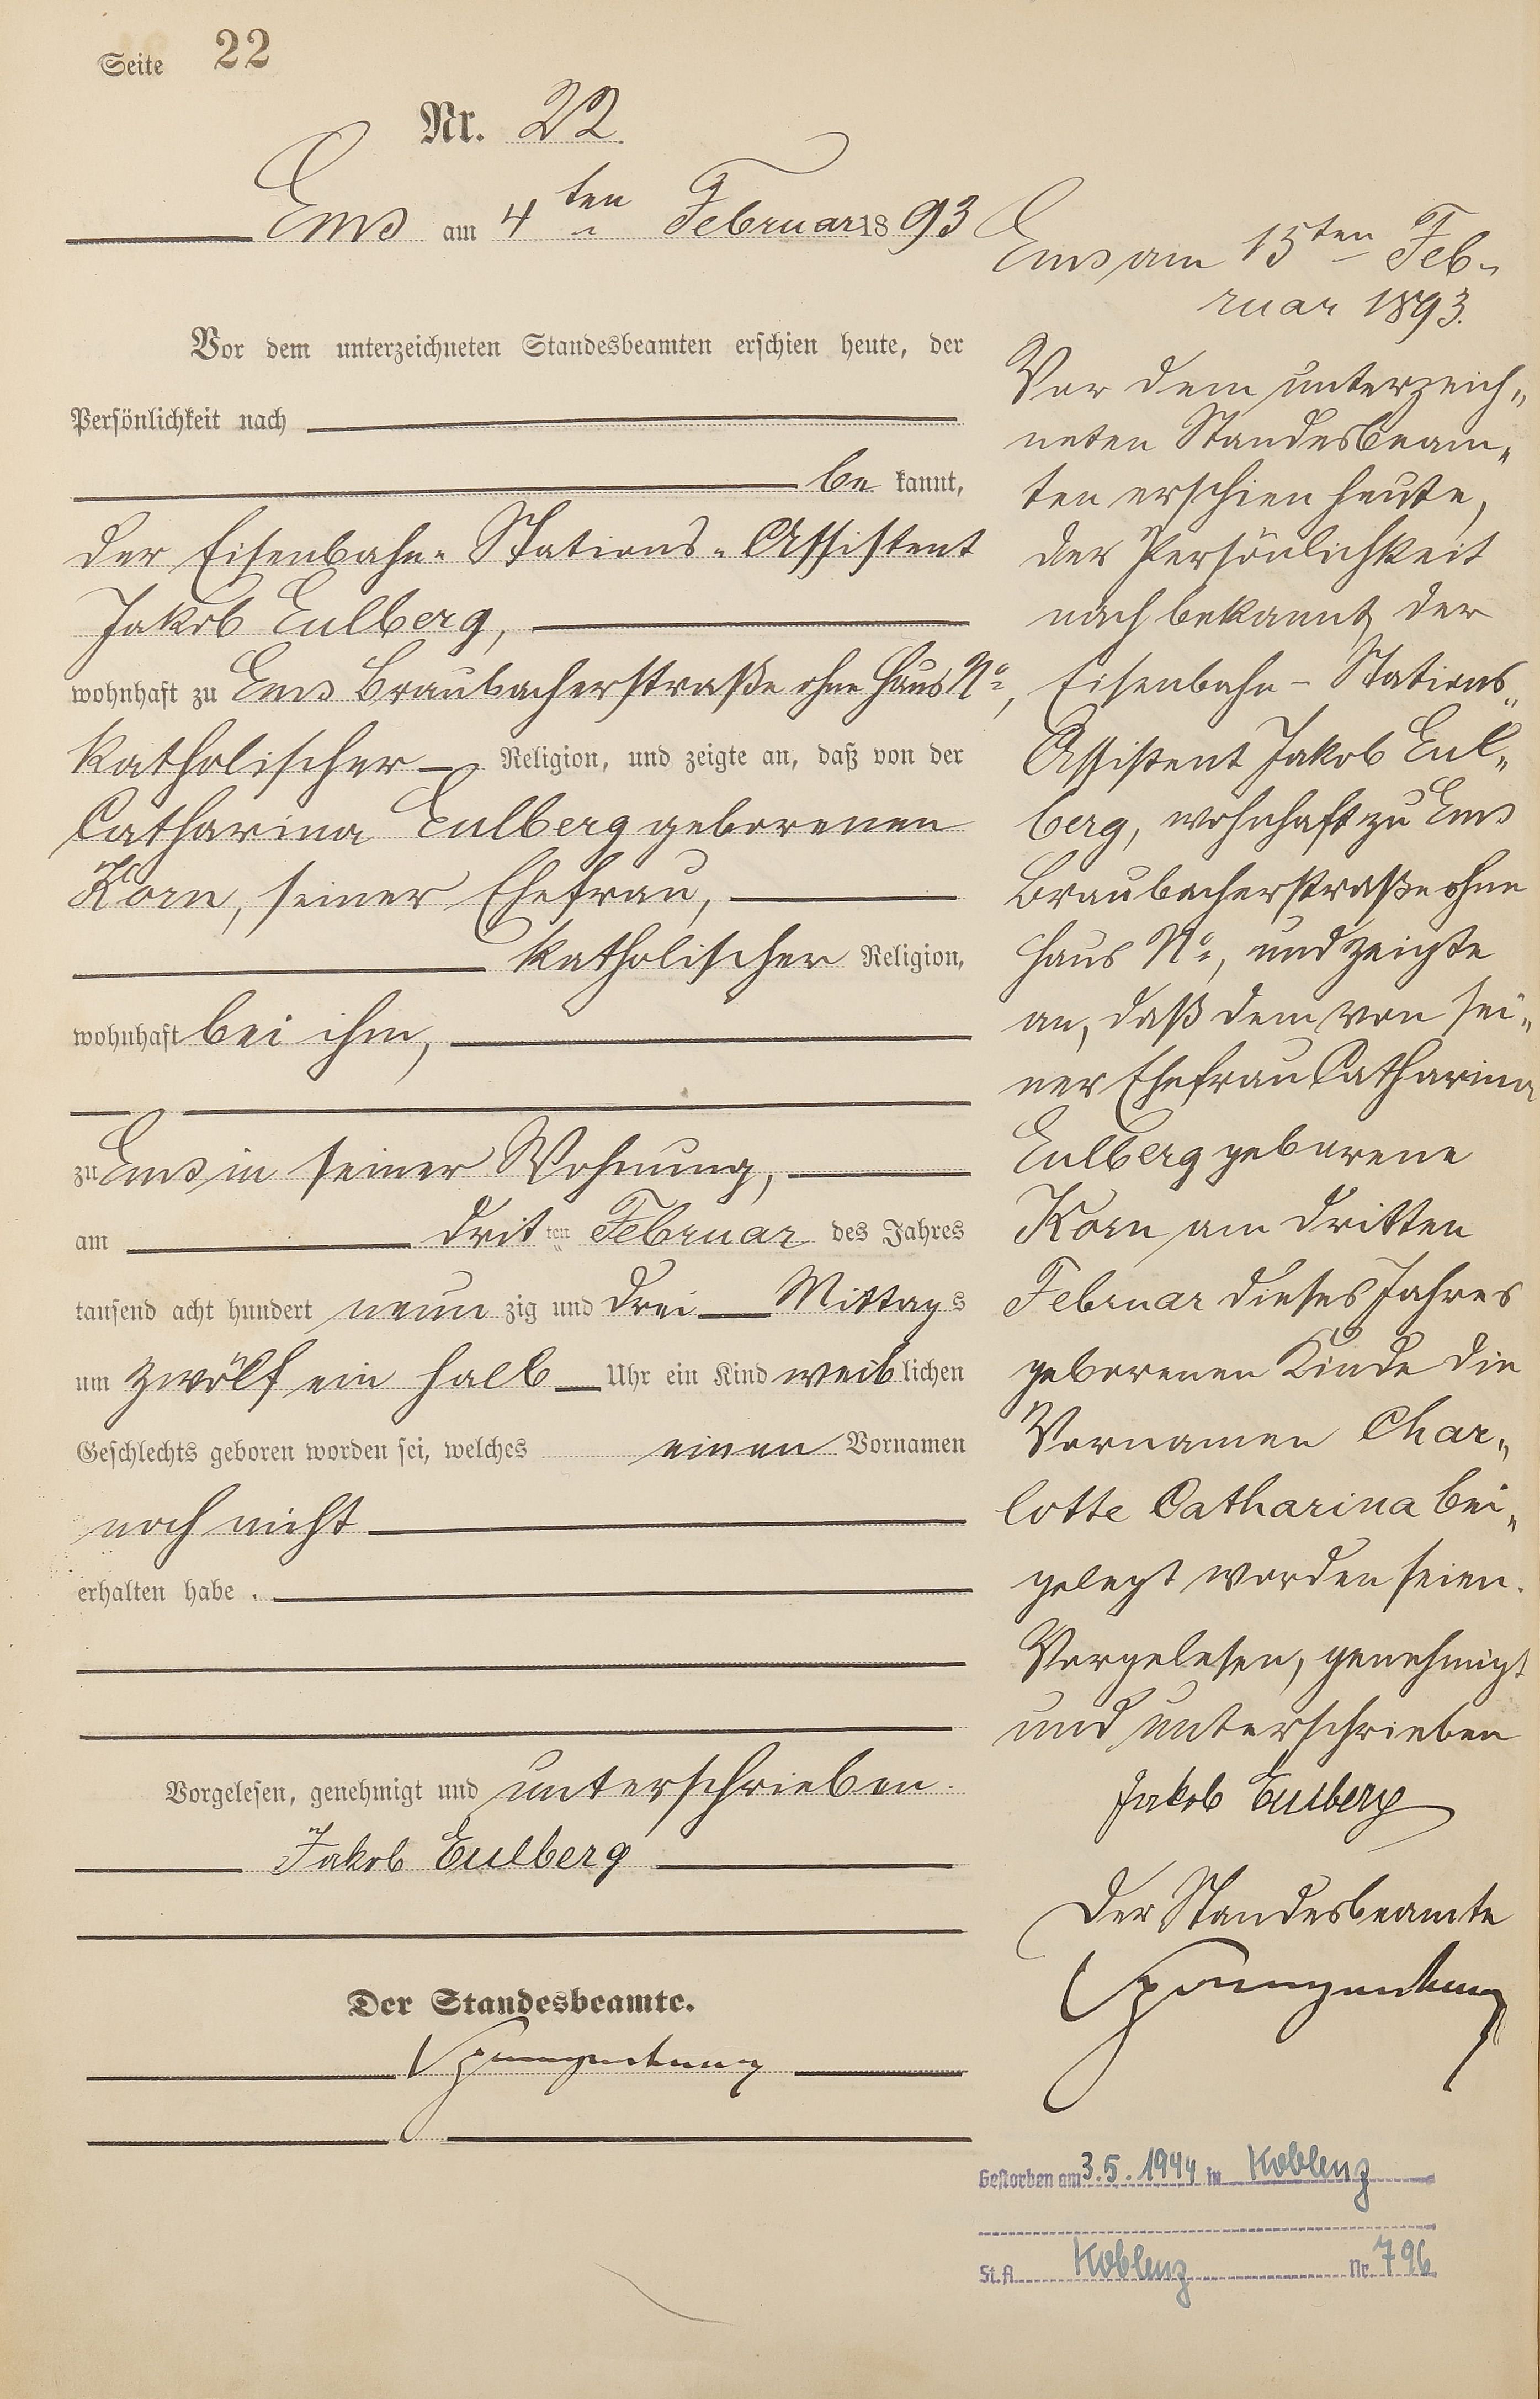 Seite 22
Nr. 22.
Ems am 4ten Februar 1893
Vor dem unterzeichneten Standesbeamten erschien heute, der
Persönlichkeit nach
be kannt,
der Eisenbahn-Stations-Assistent
Jakob Eulberg,
wohnhaft zu Ems Braubacherstraße ohne Haus No,
katholischer Religion, und zeigte an, daß von der
Catharina Eulberg geborenen
Korn, seiner Ehefrau,
katholischer Religion,
wohnhaft bei ihm,
zu Ems in seiner Wohnung,
am dritten Februar des Jahres
tausend acht hundert neun zig und drei Mittags
um zwölf ein halb Uhr ein Kind weiblichen
Geschlechts geboren worden sei, welches einen Vornamen
noch nicht
erhalten habe.
Vorgelesen, genehmigt und unterschrieben.
Jakob Eulberg
Der Standesbeamte.
Ems am 15ten Feb-
ruar 1893.
Vor dem unterzeich-
neten Standesbeam-
ten erschien heute,
der Persönlichkeit
nach bekannt, der
Eisenbahn-Stations-
Assistent Jakob Eul-
berg, wohnhaft zu Ems
Braubacherstraße ohne
Haus No, und zeigte
an, daß dem von sei-
ner Ehefrau Catharina
Eulberg geborene
Korn am dritten
Februar dieses Jahres
geborenen Kinde die
Vornamen Char-
lotte Catharina bei-
gelegt worden seien.
Vorgelesen, genehmigt
und unterschrieben
Jakob Eulberg
Der Standesbeamte
Gestorben am 3.5.1944 in Koblenz
St.A. Koblenz Nr. 796